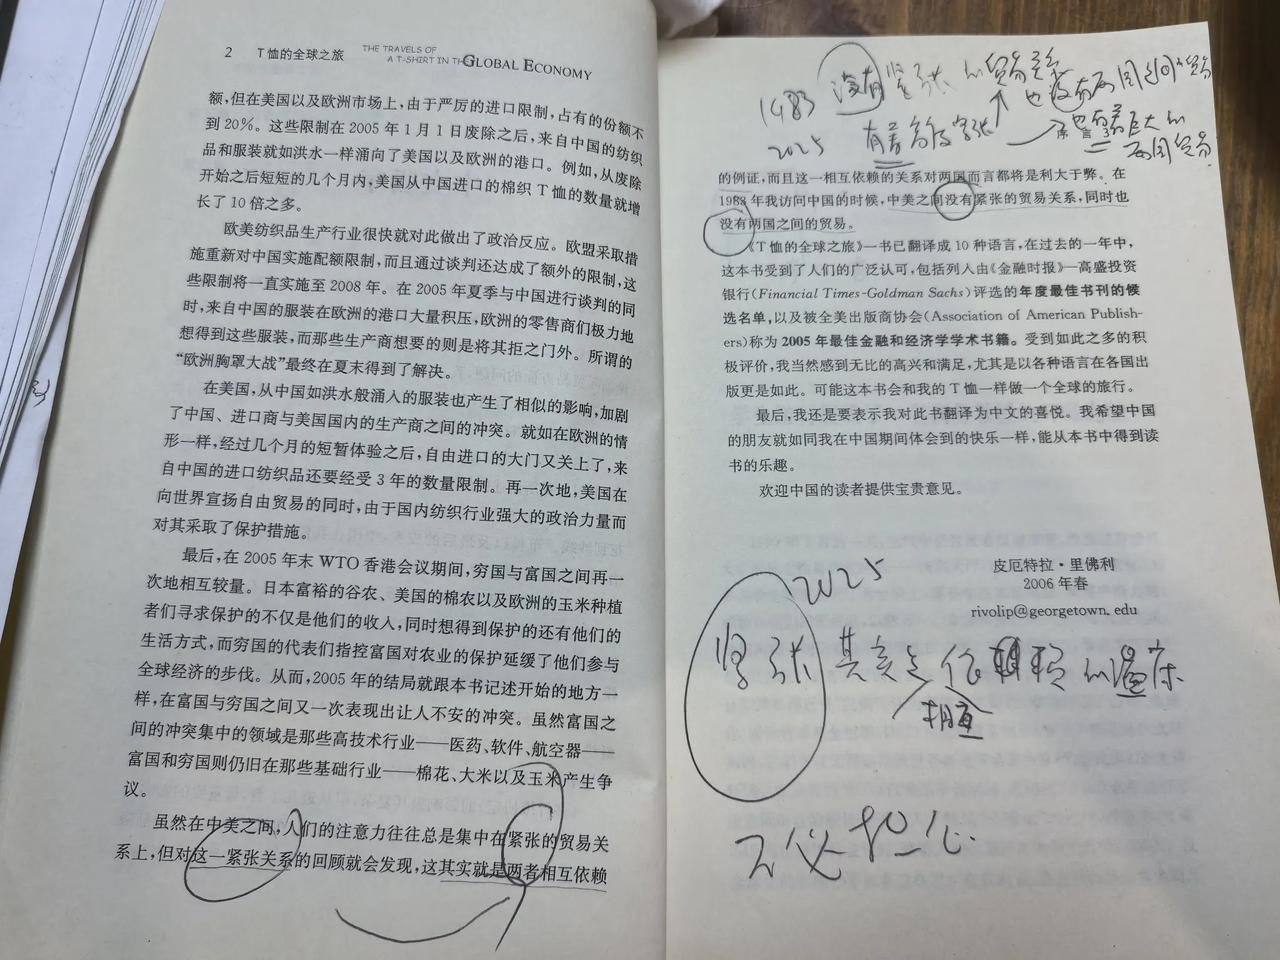 2 T恤的全球之旅 THE TRAVELS OF A T-SHIRT IN THE GLOBAL ECONOMY
额,但在美国以及欧洲市场上,由于严厉的进口限制,占有的份额不
到20%。这些限制在2005年1月1日废除之后,来自中国的纺织
品和服装就如洪水一样涌向了美国以及欧洲的港口。例如,从废除
开始之后短短的几个月内,美国从中国进口的棉织T恤的数量就增
长了10倍之多。
欧美纺织品生产行业很快就对此做出了政治反应。欧盟采取措
施重新对中国实施配额限制,而且通过谈判还达成了额外的限制,这
些限制将一直实施至2008年。在2005年夏季与中国进行谈判的同
时,来自中国的服装在欧洲的港口大量积压,欧洲的零售商们极力地
想得到这些服装,而那些生产商想要的则是将其拒之门外。所谓的
“欧洲胸罩大战”最终在夏末得到了解决。
在美国,从中国如洪水般涌入的服装也产生了相似的影响,加剧
了中国、进口商与美国国内的生产商之间的冲突。就如在欧洲的情
形一样,经过几个月的短暂体验之后,自由进口的大门又关上了,来
自中国的进口纺织品还要经受3年的数量限制。再一次地,美国在
向世界宣扬自由贸易的同时,由于国内纺织行业强大的政治力量而
对其采取了保护措施。
最后,在2005年末WTO香港会议期间,穷国与富国之间再一
次地相互较量。日本富裕的谷农、美国的棉农以及欧洲的玉米种植
者们寻求保护的不仅是他们的收入,同时想得到保护的还有他们的
生活方式,而穷国的代表们指控富国对农业的保护延缓了他们参与
全球经济的步伐。从而,2005年的结局就跟本书记述开始的地方一
样,在富国与穷国之间又一次表现出让人不安的冲突。虽然富国之
间的冲突集中的领域是那些高技术行业——医药、软件、航空器——
富国和穷国则仍旧在那些基础行业——棉花、大米以及玉米产生争
议。
虽然在中美之间,人们的注意力往往总是集中在紧张的贸易关
系上,但对这一紧张关系的回顾就会发现,这其实就是两者相互依赖
1983 没有紧张的贸易关系 也没有两国之间贸易
2025 有着高度紧张 也有着巨大的
两国贸易
的例证,而且这一相互依赖的关系对两国而言都将是利大于弊。在
1983年我访问中国的时候,中美之间没有紧张的贸易关系,同时也
没有两国之间的贸易。
《T恤的全球之旅》一书已翻译成10种语言,在过去的一年中,
这本书受到了人们的广泛认可,包括列入由《金融时报》—高盛投资
银行(Financial Times-Goldman Sachs)评选的年度最佳书刊的候
选名单,以及被全美出版商协会(Association of American Publish-
ers)称为2005年最佳金融和经济学学术书籍。受到如此之多的积
极评价,我当然感到无比的高兴和满足,尤其是以各种语言在各国出
版更是如此。可能这本书会和我的T恤一样做一个全球的旅行。
最后,我还是要表示我对此书翻译为中文的喜悦。我希望中国
的朋友就如同我在中国期间体会到的快乐一样,能从本书中得到读
书的乐趣。
欢迎中国的读者提供宝贵意见。
皮厄特拉·里佛利
2006年春
rivolip@georgetown.edu
2025
紧张其实是依赖的温床
相互
不必担心